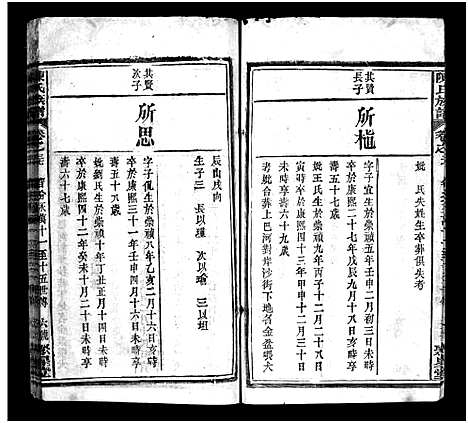 陳氏族譜
共賢長子
所植
妣 氏失姓生卒葬俱失考
字子宜生於崇禎五年壬申二月初三日
卒於康熙二十七年戊辰九月十六日享
壽五十七歲
妣王氏生於崇禎九年丙子十二月二十八日
卒於康熙四十三年甲申十二月十三日
未時享壽六十九歲
考妣合葬上巴河對岸沙街下地名金盆張大
辰山戌向
生子三 長以璞 次以瑜 三以坦
共賢次子
所思
字子侃生於崇禎八年乙亥二月十六日亥時
卒於康熙三十一年壬申四月十六日未時享
壽五十八歲
妣劉氏生於崇禎十年丁丑正月十四日亥時
卒於康熙四十二年癸未十月二十日未時享
壽六十七歲
陳氏族譜
十一至十五世傳
六號
聚星堂